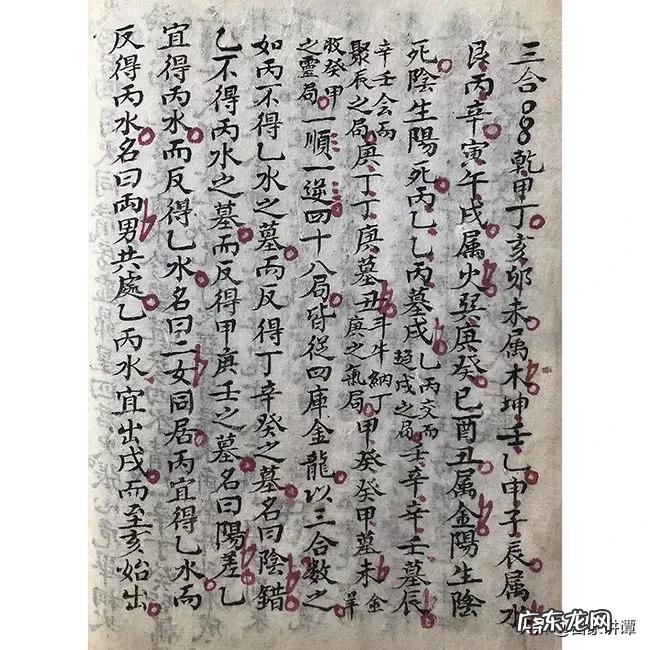 三合乾甲丁亥卯未属木坤壬乙申子辰属水
艮丙辛寅午戌属火巽庚癸巳酉丑属金陽生陰
死陰生陽死丙乙乙丙墓戌乙丙交而趋戌之局壬辛辛壬墓辰
辛壬会而聚辰之局庚丁丁庚墓丑斗牛納丁庚之氣局甲癸癸甲墓未金羊
收癸甲之靈局一順一逆四十八局皆從四庫金龍以三合数之
如丙不得乙水之墓而反得丁辛癸之墓名曰陰錯
乙不得丙水之墓而反得甲庚壬之墓名曰陽差乙
宜得丙水而反得乙水名曰二女同居丙宜得乙水而
反得丙水名曰両男共處乙丙水宜出戌而至亥始出
广东龙网